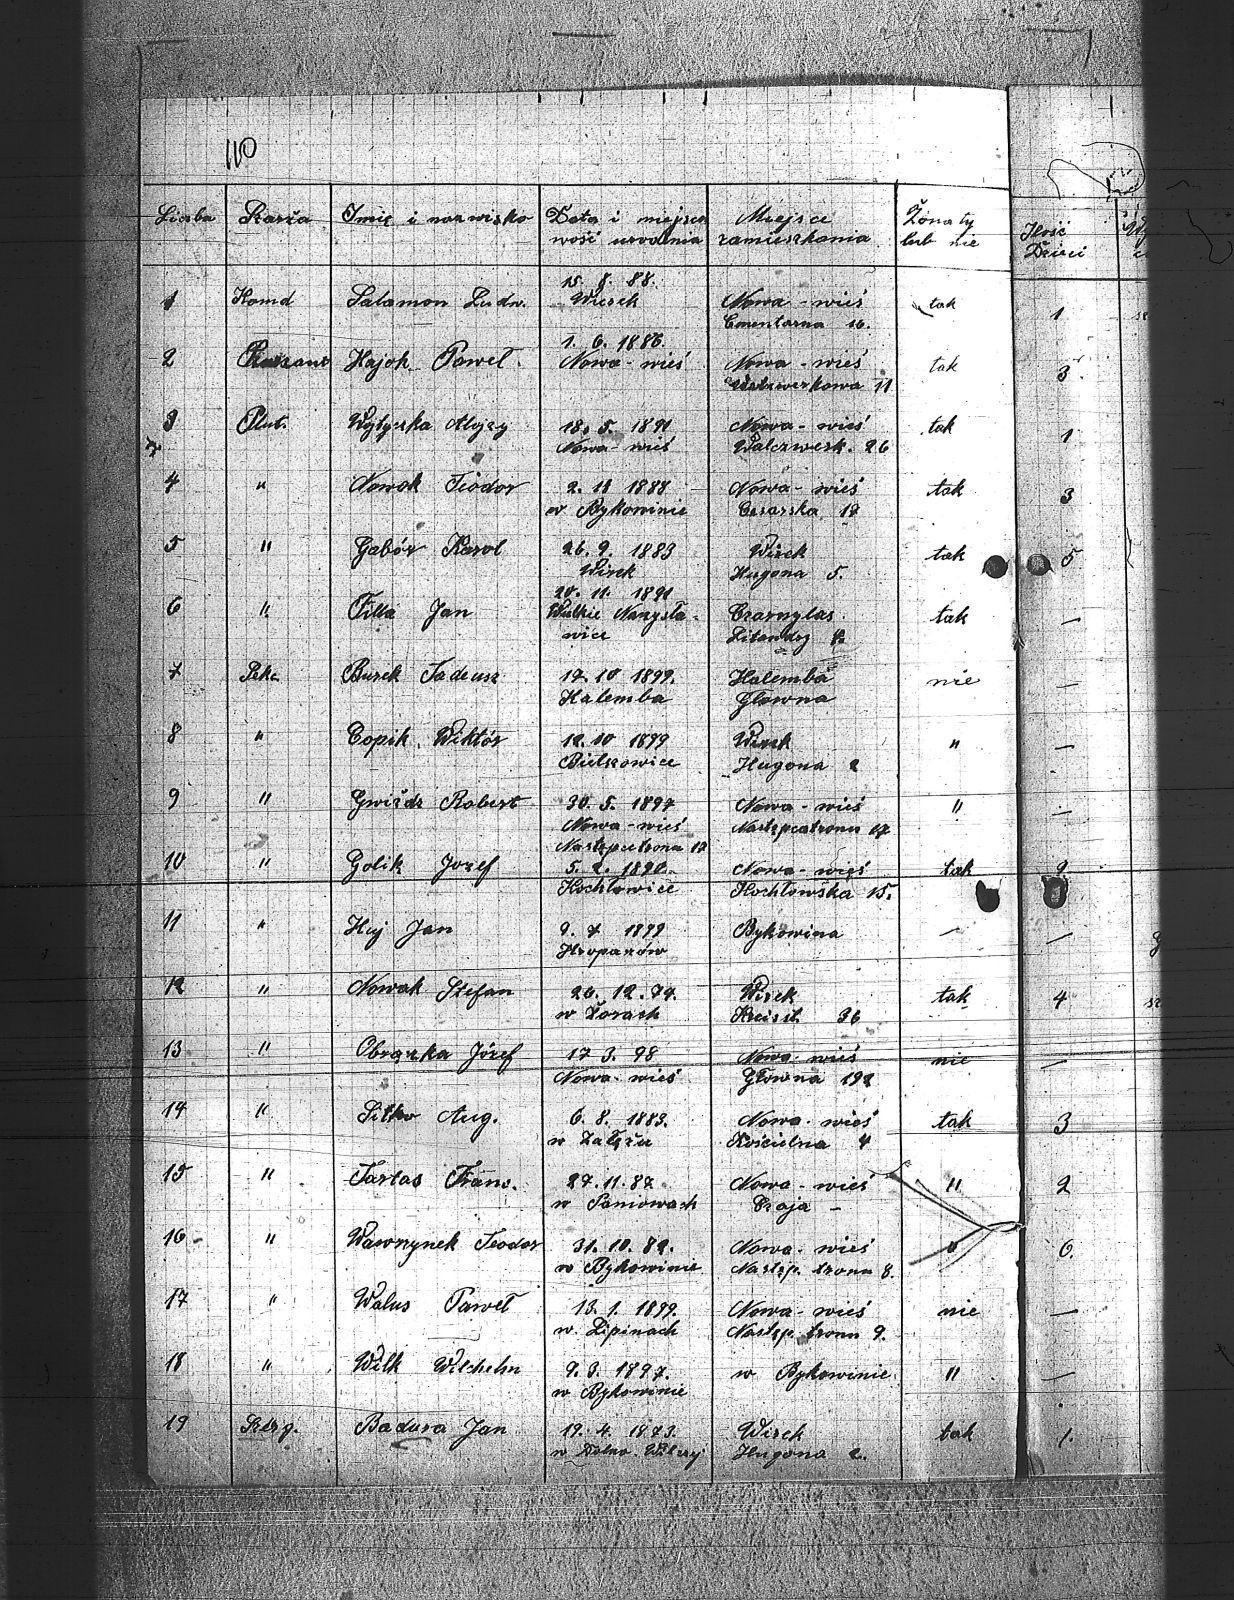 110
Liczba Szarża Imię i nazwisko Data i miejsco Miejsce Żonaty Ilość
wość urodzenia zamieszkania lub nie Dzieci
15. 8. 88.
1 Komd Salamon Ludw. Wirek Nowa-wieś tak 1
Cmentarna 16.
1. 6. 1886.
2 Hajok Paweł. Nowa-wieś Nowa-wieś tak 3
11
3 Plut. Alojzy 18. 5. 1891 Nowa-wieś tak 1
Nowa-wieś Walcwerk. 26
4 " Nowak Teodor 2. 11 1888 Nowa-wieś tak 3
w Bykowinie Cesarska 19
5 " Gabór Karol 26. 9. 1883 Wirek tak 5
Wirek Hugona 5.
20. 11. 1891
6 " Filla Jan Czarnylas. tak —
wice
7 Burek Tadeusz 17. 10 1899. Halemba nie —
Halemba Glowna
8 " Copik Wiktór 12. 10 1899 Wirek " —
Bielszowice Hugona 2
9 " Gwiźdz Robert 30. 5. 1897 Nowa-wieś " —
Nowa-wieś Nastzpcatronu 17
Nastzpcatrona 17
10 " Golik Jozef 5. 2. 1890. Nowa-wieś tak 2
Kochłowice Kochłowska 15.
11 " Huj Jan 9. 7 1899 Bykowina — —
Kropaczów
12 " Nowak Stefan 26. 12. 74. Wirek tak 4
w Żorach Kreisst. 36
13 " Obrączka Józef 17 3. 98 Nowa-wieś nie —
Nowa-wieś Głowna 192
14 " Sitko Aug. 6. 8. 1883. Nowa-wieś tak 3
w Załężu Kościelna 4
15 " Tartas Frans. 27. 11. 87 Nowa-wieś " 2
w Paniowach Czaja —
16 " Wawrzynek Teodor 31. 10. 82. Nowa-wieś " 6.
w Bykowinie Nastzp. tronu 8.
17 " Walus Paweł 13. 1. 1899. Nowa-wieś nie —
w. Lipinach Nastzp. tronu 9.
18 " Wilk Wilchelm 9. 3. 1897. w Bykowinie " —
w Bykowinie
19 Szerg. Badura Jan 19. 4. 1873. Wirek tak 1.
w Hugona 2.